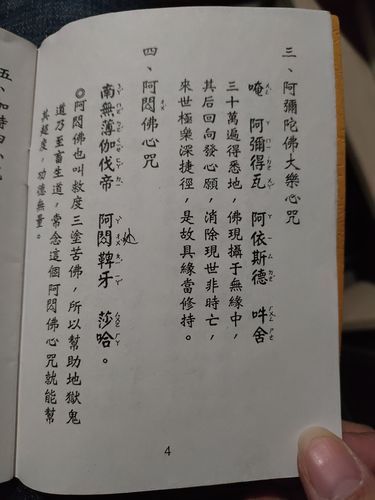 三、阿彌陀佛大樂心咒
唵 阿彌得瓦 阿依斯德 吽舍
三十萬遍得悉地，佛現攝于無緣中，
其后回向發心願，消除現世非時亡，
來世極樂深捷徑，是故具緣當修持。
四、阿閦佛心咒
南無薄伽伐帝 阿閦鞞牙 莎哈。
◎阿閦佛也叫救度三塗苦佛，所以幫助地獄鬼
道乃至畜生道，常念這個阿閦佛心咒就能幫
其超度，功德無量。
4